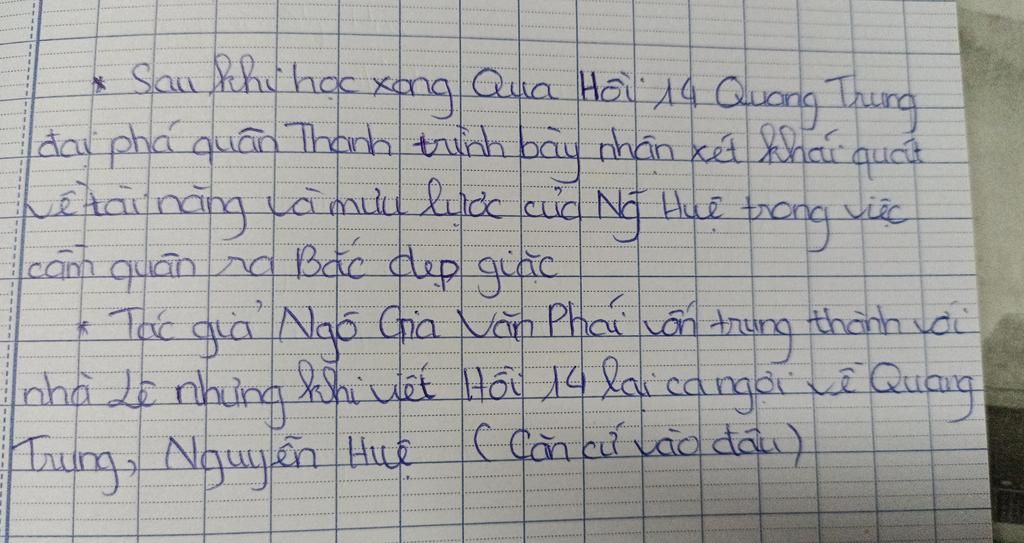 * Sau khi học xong Qua Hồi 14 Quang Trung
đại phá quân Thanh trình bày nhận xét khái quát
về tài năng và mưu lược của Ng̃ Huệ trong việc
cầm quân ra Bắc dẹp giặc
* Tác giả Ngô Gia Văn Phái vốn trung thành với
nhà Lê nhưng khi viết Hồi 14 lại ca ngợi về Quang
Trung, Nguyễn Huệ (Căn cứ vào đâu)